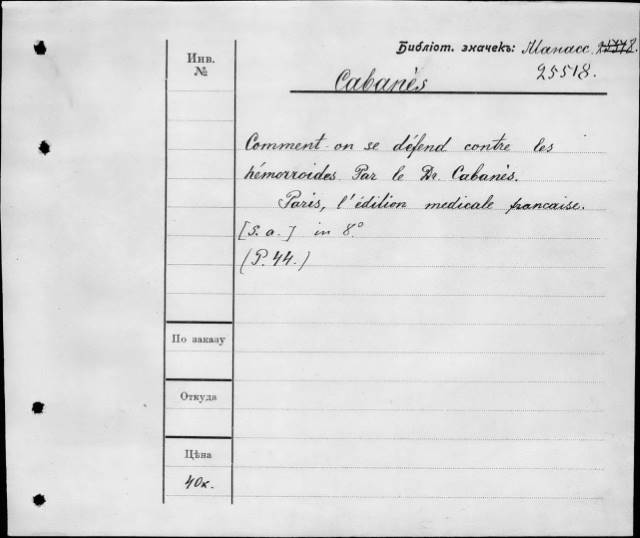 Инв.
№
Библіот. значекъ: Манасс.
25518.
Cabanès
Comment on se défend contre les
hémorroides. Par le Dr. Cabanès.
Paris, l'édition medicale francaise.
[S. a.] in 8°
(P. 44.)
По заказу
Откуда
Цѣна
40к.